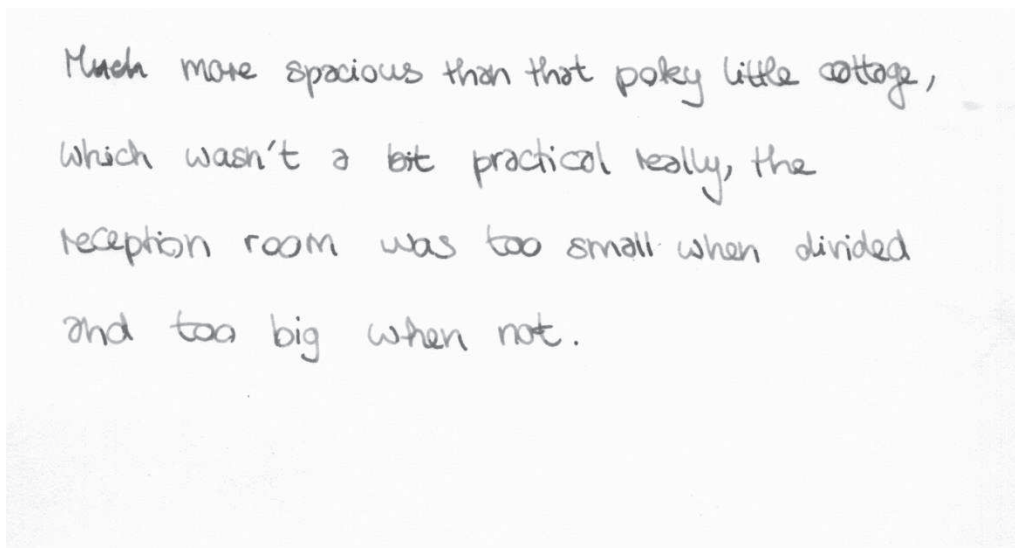 Much more spacious than that poky little cottage,
which wasn't a bit practical really, the
reception room was too small when divided
and too big when not.